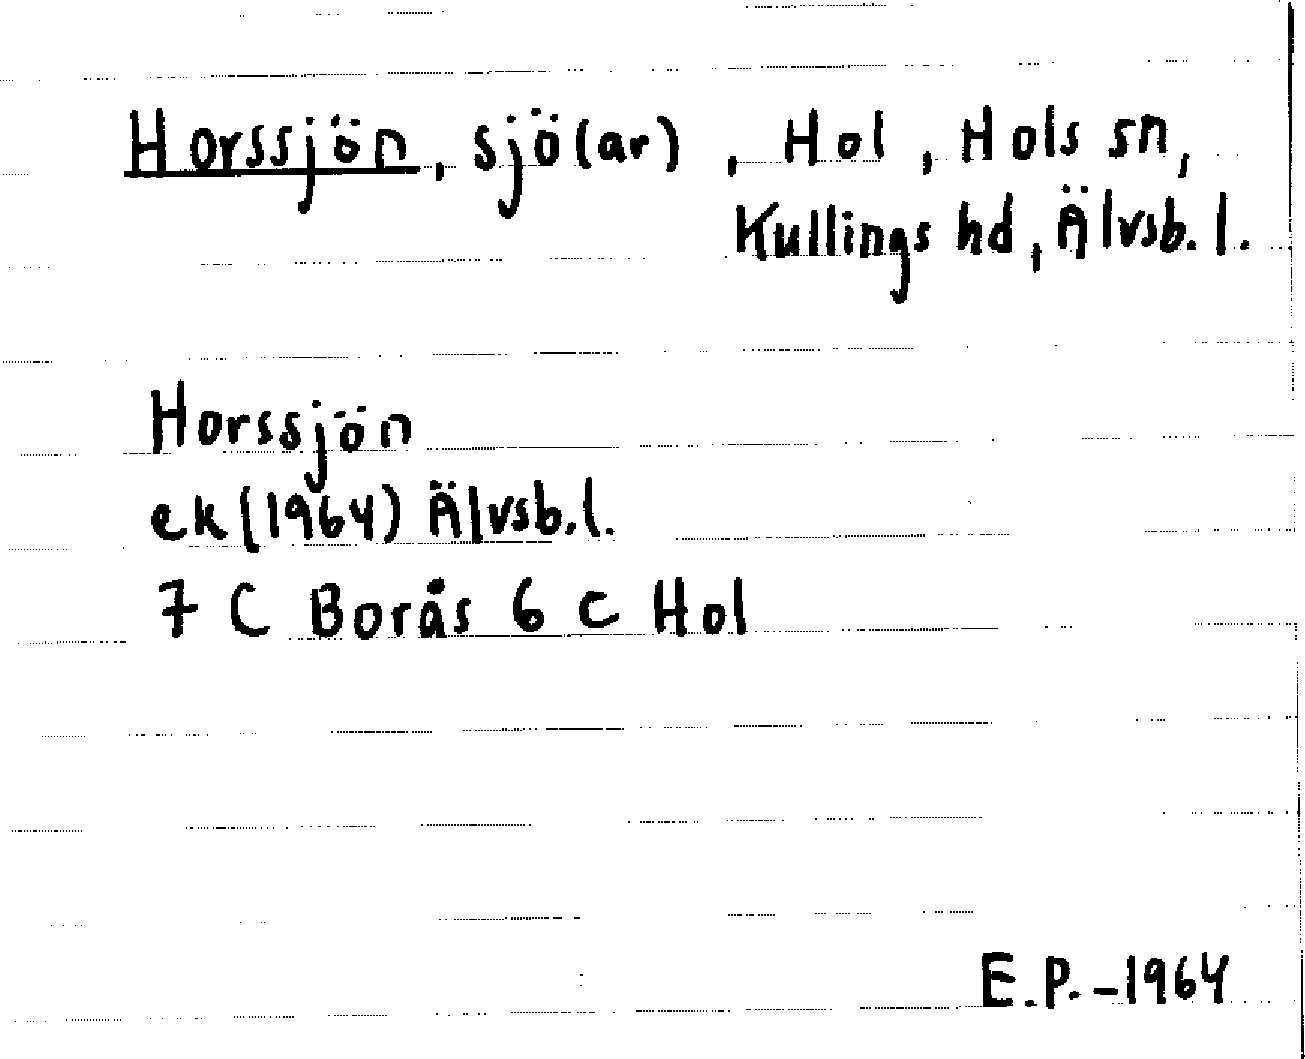 Horssjön, sjö(ar), Hol, Hols sn,
Kullings hd, Älvsb. l.
Horssjön
ek (1964) Älvsb. l.
7 C Borås 6 c Hol
E.P. - 1964